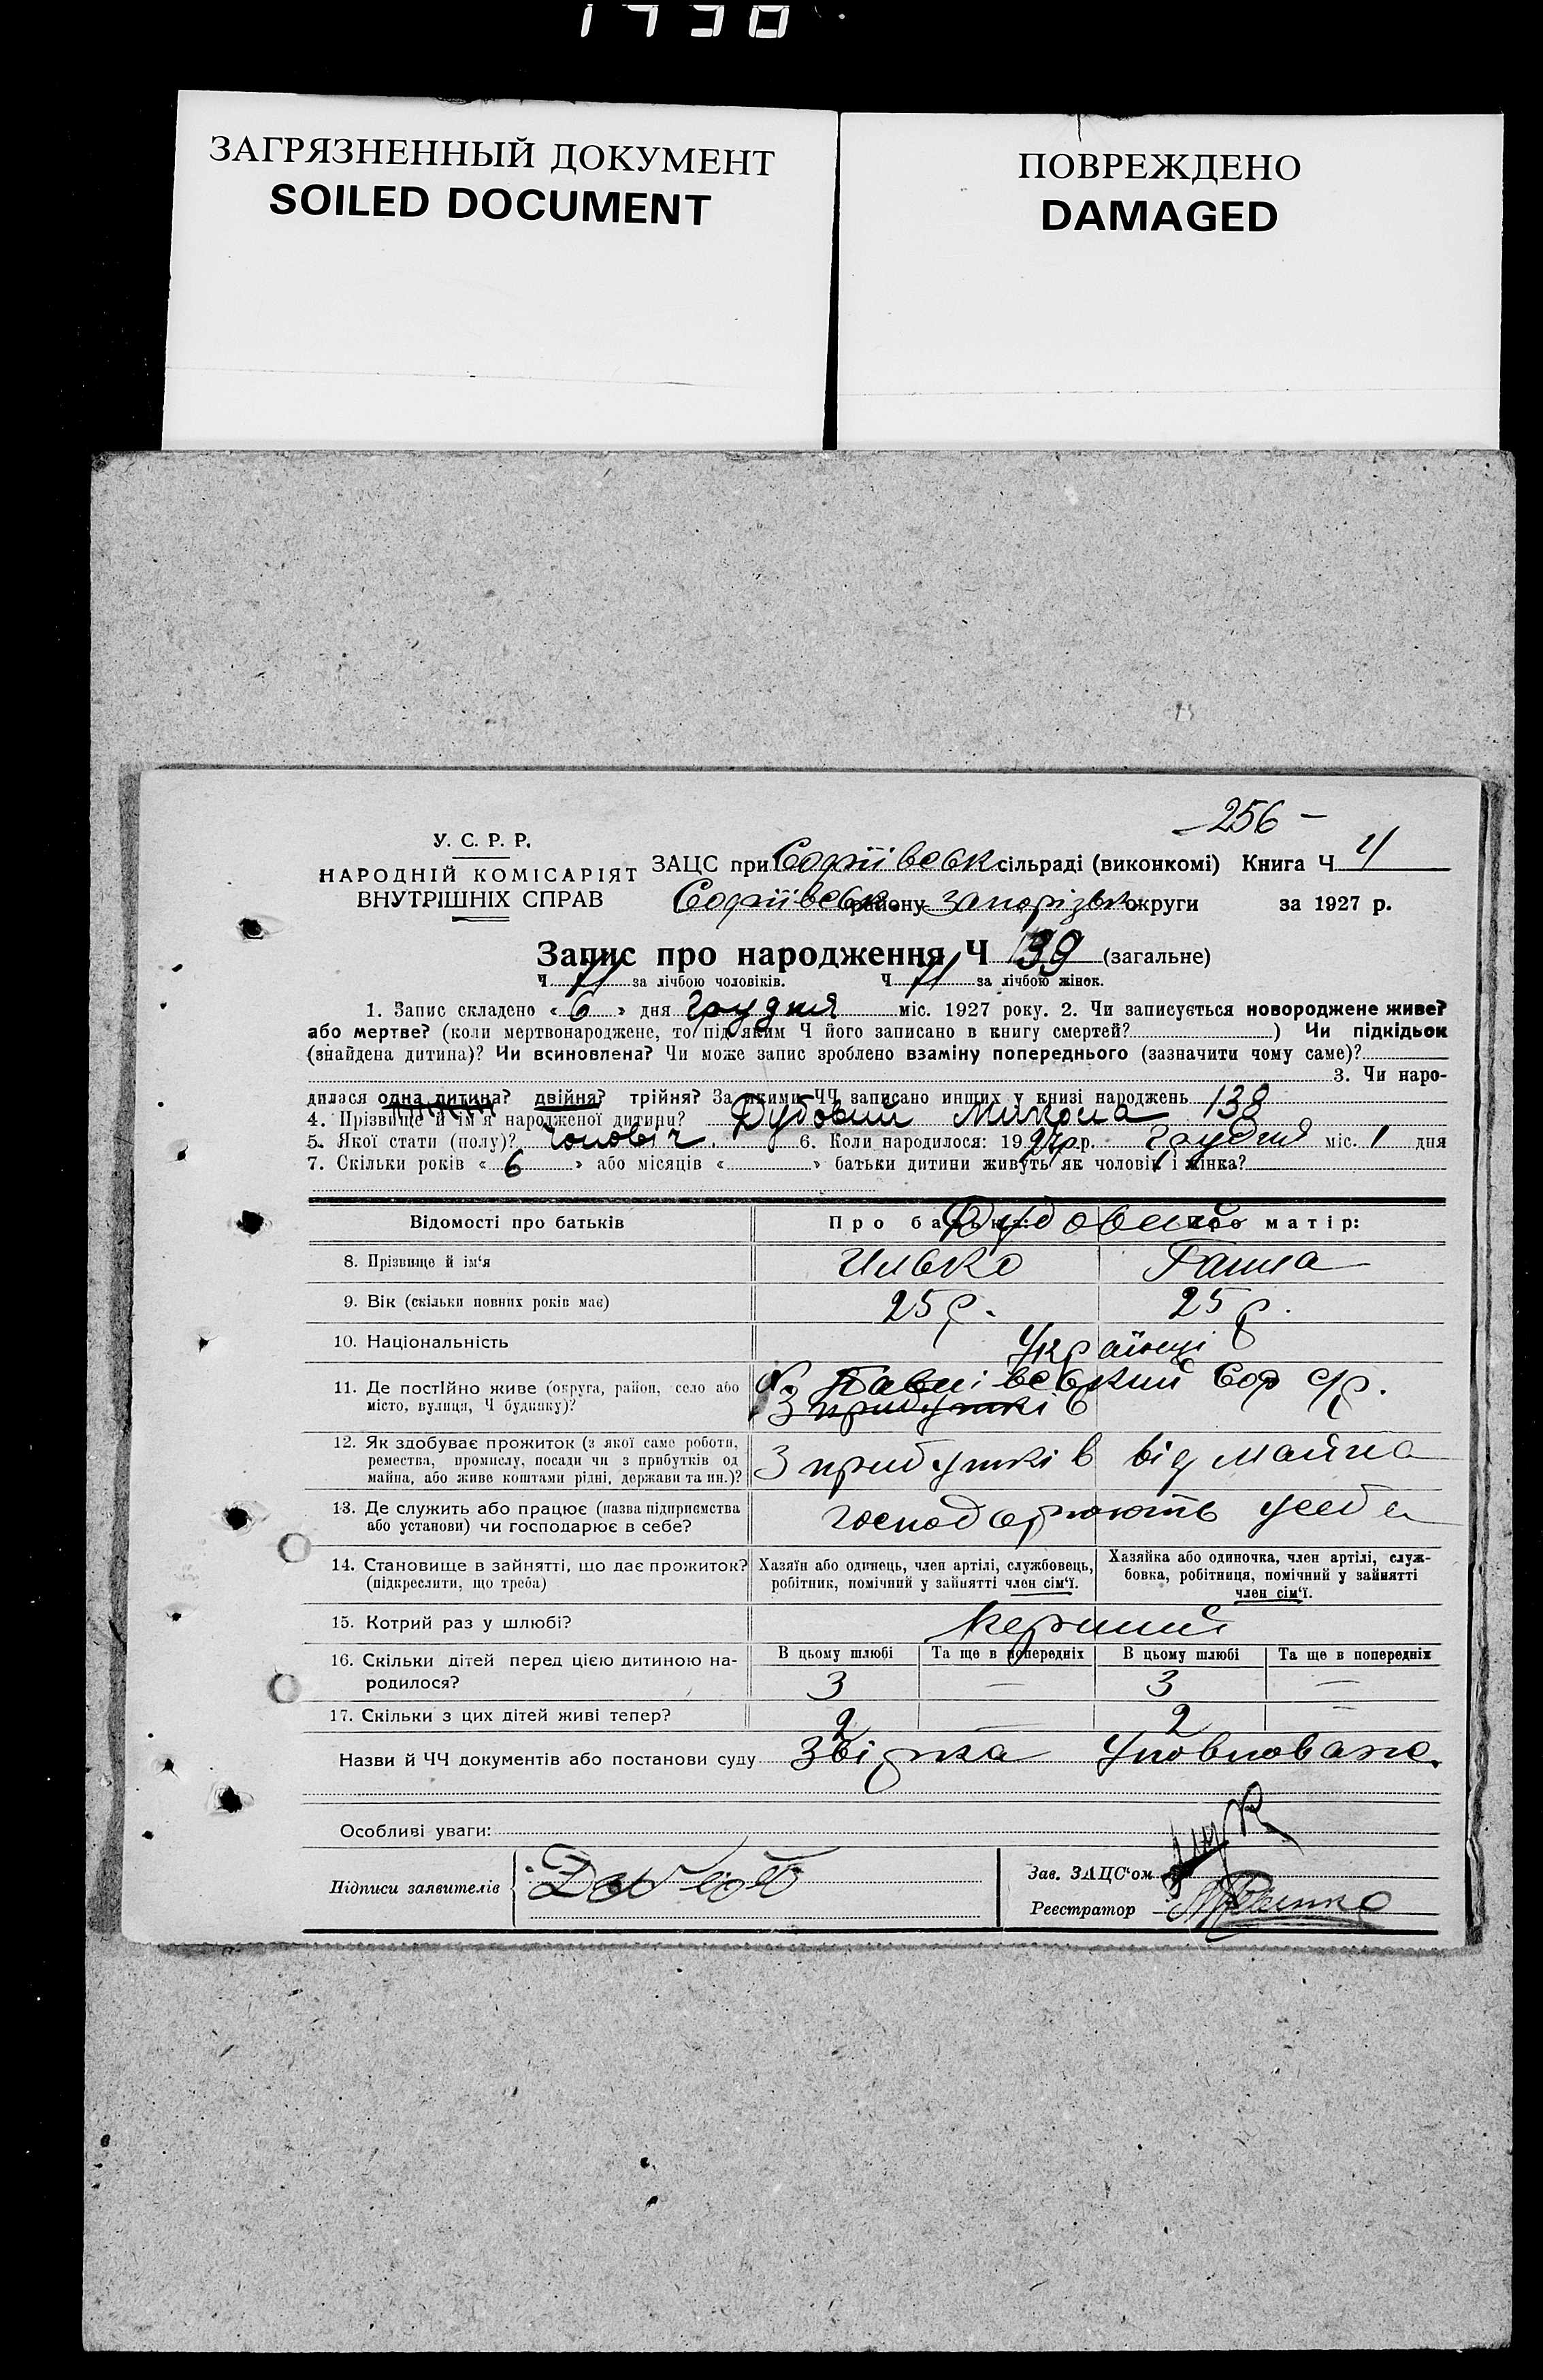 1730
ЗАГРЯЗНЕННЫЙ ДОКУМЕНТ
SOILED DOCUMENT
ПОВРЕЖДЕНО
DAMAGED
256 –
У. С. Р. Р.
НАРОДНІЙ КОМІСАРІЯТ
ВНУТРІШНІХ СПРАВ
ЗАЦС при Софіївськ сільраді (виконкомі) Книга Ч 4
Софіївськ. району Запорізьк округи за 1927 р.
Запис про народження Ч 139 (загальне)
Ч за лічбою чоловіків. Ч за лічбою жінок.
1. Запис складено « 6 » дня Грудня міс. 1927 року. 2. Чи записується новороджене живе?
або мертве? (коли мертвонароджене, то під яким Ч його записано в книгу смертей? ) Чи підкідьок
(знайдена дитина)? Чи всиновлена? Чи може запис зроблено взаміну попереднього (зазначити чому саме)?
3. Чи наро-
дилася одна дитина? двійня? трійня? За якими ЧЧ записано инших у книзі народжень 138
4. Прізвище й ім'я народженої дитини? Дубовий Микола
5. Якої стати (полу)? Чоловіч. 6. Коли народилося: 1927 р. Грудня міс. 1 дня
7. Скільки років « 6 » або місяців « » батьки дитини живуть як чоловік і жінка?
Відомості про батьків Про батька: Про матір:
Дубовий
8. Прізвище й ім'я Илько Ганна
9. Вік (скільки повних років має) 25 р. 25 р.
10. Національність Українці
11. Де постійно живе (округа, район, село або Павлівський Соф с/р.
місто, вулиця, Ч будинку)? З прибутків
12. Як здобуває прожиток (з якої саме роботи,
ремества, промислу, посади чи з прибутків од З прибутків від майна
майна, або живе коштами рідні, держави та ин.)?
13. Де служить або працює (назва підприємства
або установи) чи господарює в себе? господарюють у себе
14. Становище в зайнятті, що дає прожиток? Хазяїн або одинець, член артілі, службовець, Хазяйка або одиночка, член артілі, служ-
(підкреслити, що треба) робітник, помічний у зайнятті член сім'ї. бовка, робітниця, помічний у зайнятті
член сім'ї.
15. Котрий раз у шлюбі? перший
16. Скільки дітей перед цією дитиною на- В цьому шлюбі Та ще в попередніх В цьому шлюбі Та ще в попередніх
родилося? 3 — 3 —
17. Скільки з цих дітей живі тепер? 2 — 2 —
Назви й ЧЧ документів або постанови суду Звірка Уповноважо.
Особливі уваги:
Підписи заявителів
Зав. ЗАЦС'ом
Реєстратор